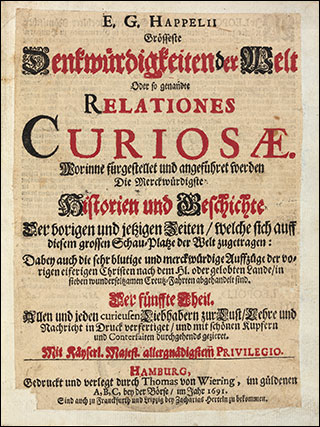 E. G. HAPPELII
Grösseste
Denkwürdigkeiten der Welt
Oder so genandte
RELATIONES
CURIOSÆ.
Worinne fürgestellet und angeführet werden
Die Merckwürdigste
Historien und Geschichte
Der vorigen und jetzigen Zeiten / welche sich auff
diesem grossen Schau-Platze der Welt zugetragen:
Dabey auch die sehr blutige und merckwürdige Auffzüge der vo-
rigen eiferigen Christen nach dem Hl. oder gelobten Lande / in
sieben wunderseltzamen Creutz-Fahrten abgehandelt sind.
Der fünffte Theil.
Allen und jeden curieusen Liebhabern zur Lust / Lehre und
Nachricht in Druck verfertiget / und mit schönen Kupfern
und Conterfaiten durchgehends gezieret.
Mit Käyserl. Majest. allergnädigstem PRIVILEGIO.
HAMBURG,
Gedruckt und verlegt durch Thomas von Wiering, im güldenen
A, B, C, bey der Börse / im Jahr 1691.
Sind auch zu Franckfurth und Leipzig bey Zacharias Herteln zu bekommen.